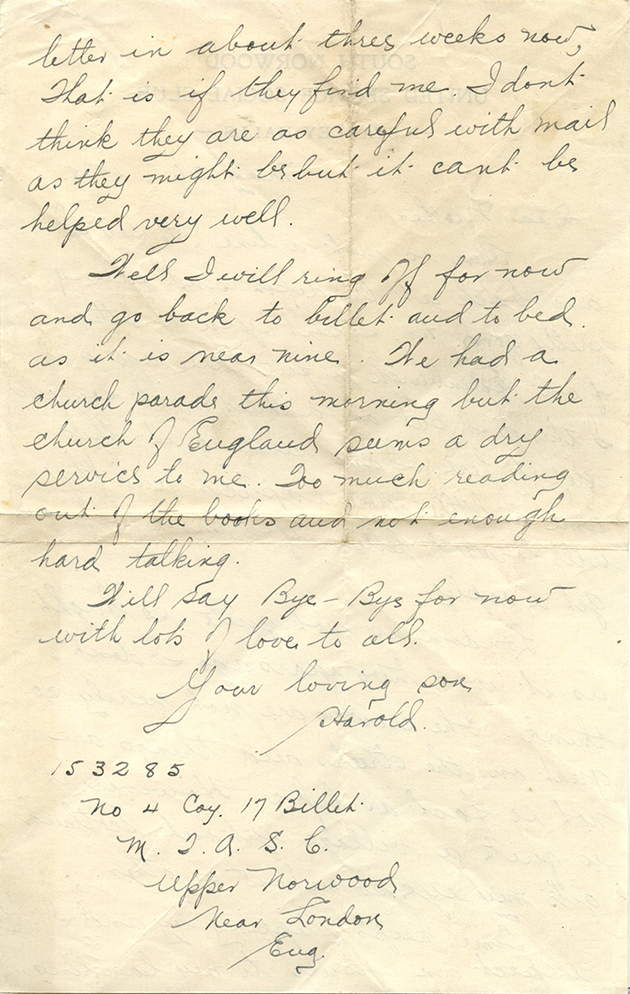 letter in about three weeks now,
That is if they find me. I dont
think they are as careful with mail
as they might be but it cant be
helped very well.
Well I will ring off for now
and go back to billet and to bed.
as it is near nine. We had a
church parade this morning but the
church of England seems a dry
service to me. Too much reading
out of the books and not enough
hard talking.
Will say Bye-Bye for now
with lots of love to all.
Your loving son
Harold.
153285
No 4 Coy. 17 Billet.
M. T. A. S. C.
Upper Norwood
Near London
Eng.